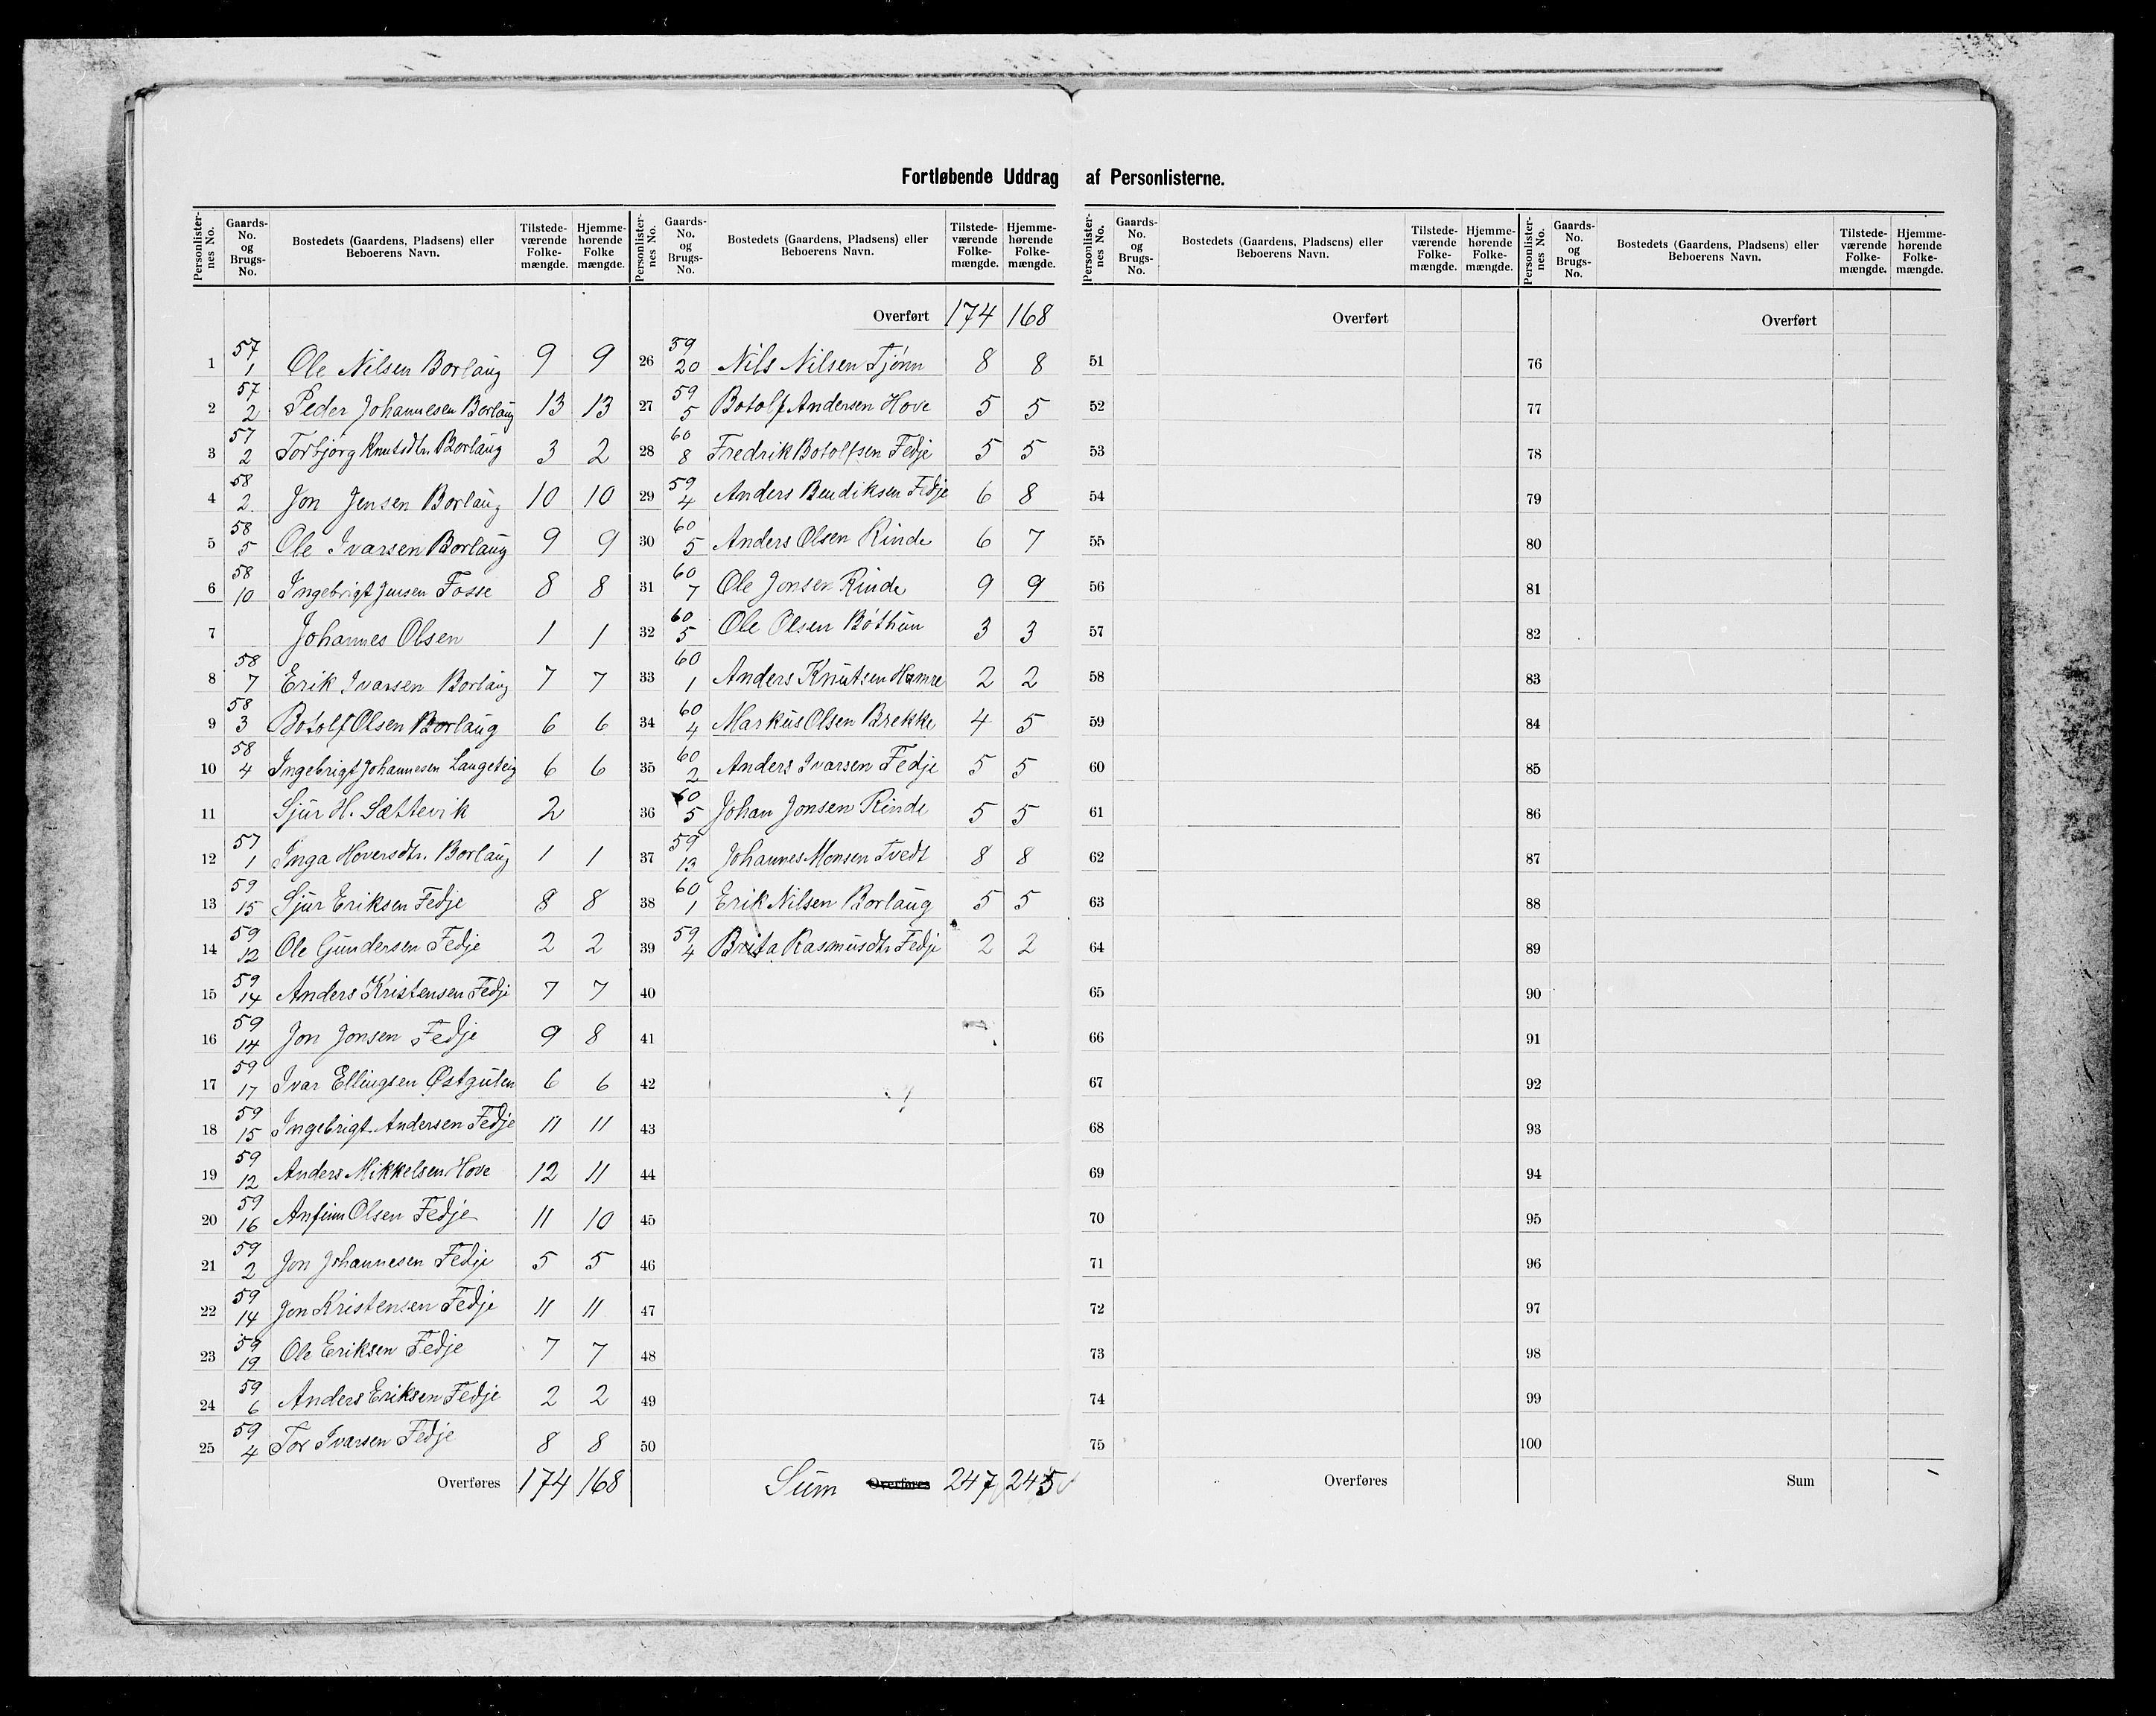 Fortløbende Uddrag af Personlisterne.
Personlister-nes No. Gaards-No. og Brugs-No. Bostedets (Gaardens, Pladsens) eller Beboerens Navn. Tilstede-værende Folke-mængde. Hjemme-hørende Folke mængde.
1 57/1 Ole Nilsen Borlaug 9 9
2 57/2 Peder Johannesen Borlaug 13 13
3 57/2 Torbjørg Knutsdtr. Borlaug 3 2
4 58/2 Jon Jensen Borlaug 10 10
5 58/5 Ole Ivarsen Borlaug 9 9
6 58/10 Ingebrigt Jensen Fosse 8 8
7 Johannes Olsen 1 1
8 58/7 Erik Ivarsen Borlaug 7 7
9 58/3 Botolf Olsen Borlaug 6 6
10 58/4 Ingebrigt Johannesen Langeteig 6 6
11 Sjur H. Sættevik 2
12 57/1 Inga Hoversdtr. Borlaug 1 1
13 59/15 Sjur Eriksen Fedje 8 8
14 59/12 Ole Gundersen Fedje 2 2
15 59/14 Anders Kristensen Fedje 7 7
16 59/14 Jon Jonsen Fedje 9 8
17 59/17 Ivar Ellingsen Østgulen 6 6
18 59/15 Ingebrigt Andersen Fedje 11 11
19 59/12 Anders Mikkelsen Hove 12 11
20 59/16 Anfinn Olsen Fedje 11 10
21 59/2 Jon Johannesen Fedje 5 5
22 59/14 Jon Kristensen Fedje 11 11
23 59/19 Ole Eriksen Fedje 7 7
24 59/6 Anders Eriksen Fedje 2 2
25 59/4 Tor Ivarsen Fedje 8 8
Overføres 174 168
Personlister-nes No. Gaards-No. og Brugs-No. Bostedets (Gaardens, Pladsens) eller Beboerens Navn. Tilstede-værende Folke-mængde. Hjemme-hørende Folke-mængde.
Overført 174 168
26 59/20 Nils Nilsen Tjønn 8 8
27 59/5 Botolf Andersen Hove 5 5
28 60/8 Fredrik Botolfsen Fedje 5 5
29 59/4 Anders Bendiksen Fedje 6 8
30 60/5 Anders Olsen Rinde 6 7
31 60/7 Ole Jonsen Rinde 9 9
32 60/5 Ole Olsen Bøthun 3 3
33 60/1 Anders Knutsen Hamre 2 2
34 60/4 Markus Olsen Brekke 4 5
35 60/2 Anders Ivarsen Fedje 5 5
36 60/5 Johan Jonsen Rinde 5 5
37 59/13 Johannes Monsen Tvedt 8 8
38 60/1 Erik Nilsen Borlaug 5 5
39 59/4 Brita Rasmusdtr Fedje 2 2
40
41
42
43
44
45
46
47
48
49
50
Sum Overføres 247 245
Personlister-nes No. Gaards-No. og Brugs-No. Bostedets (Gaardens, Pladsens) eller Beboerens Navn. Tilstede-værende Folke-mængde. Hjemme-hørende Folke-mængde.
Overført
51
52
53
54
55
56
57
58
59
60
61
62
63
64
65
66
67
68
69
70
71
72
73
74
75
Overføres
Personlister-nes No. Gaards-No. og Brugs-No. Bostedets (Gaardens, Pladsens) eller Beboerens Navn. Tilstede-værende Folke-mængde. Hjemme-hørende Folke-mængde.
Overført
76
77
78
79
80
81
82
83
84
85
86
87
88
89
90
91
92
93
94
95
96
97
98
99
100
Sum